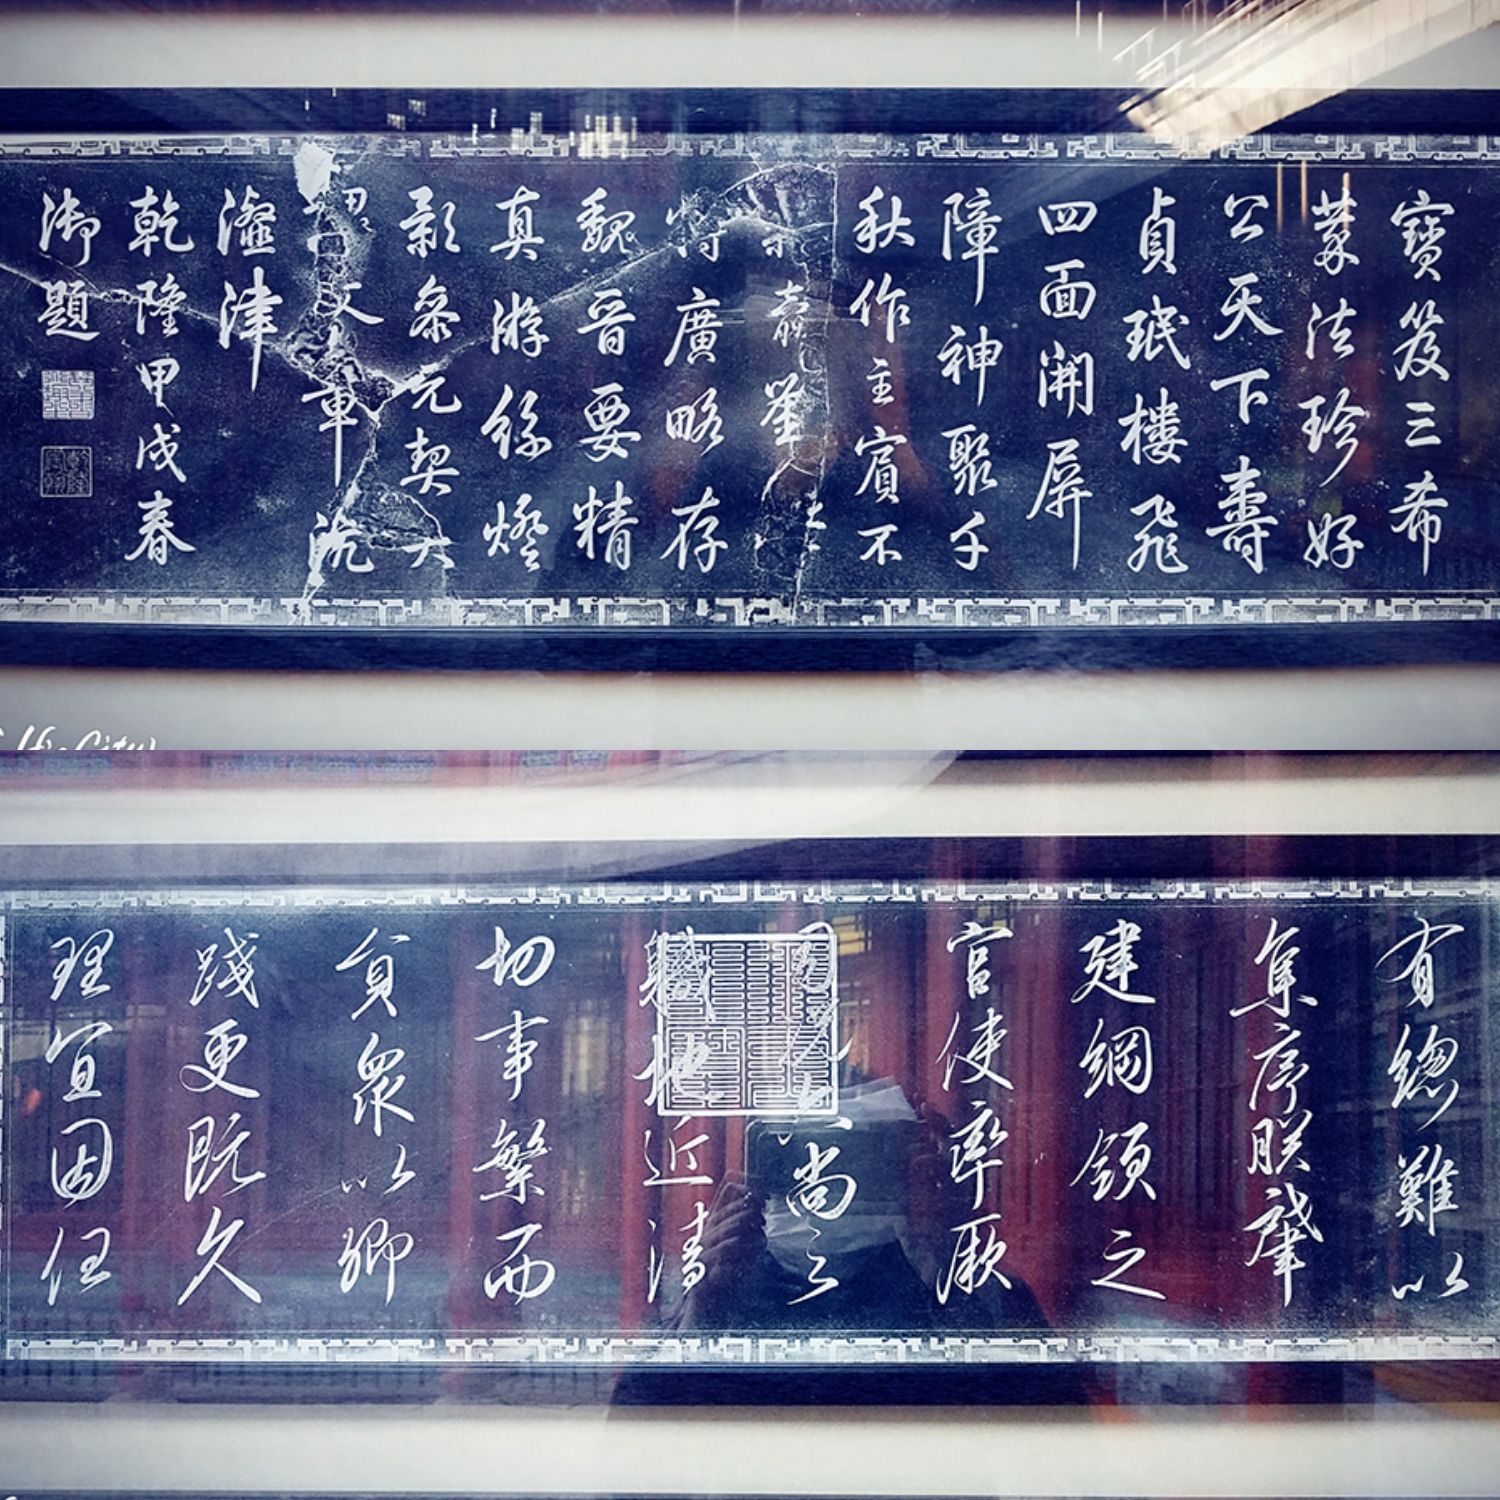 寶笈三希
蒙法珍好
公天下壽
貞珉樓飛
四面開屏
障神聚千
秋作主賓不
特廣略存
魏晋要精
真游絲燈
影參元契大
文章沆
瀣津
乾隆甲戌春
御題
有總難以
集序朕肇
建綱領之
官使率厥
司況六尚之
職地近清
切事繁而
員眾以卿
踐更既久
理宜因任